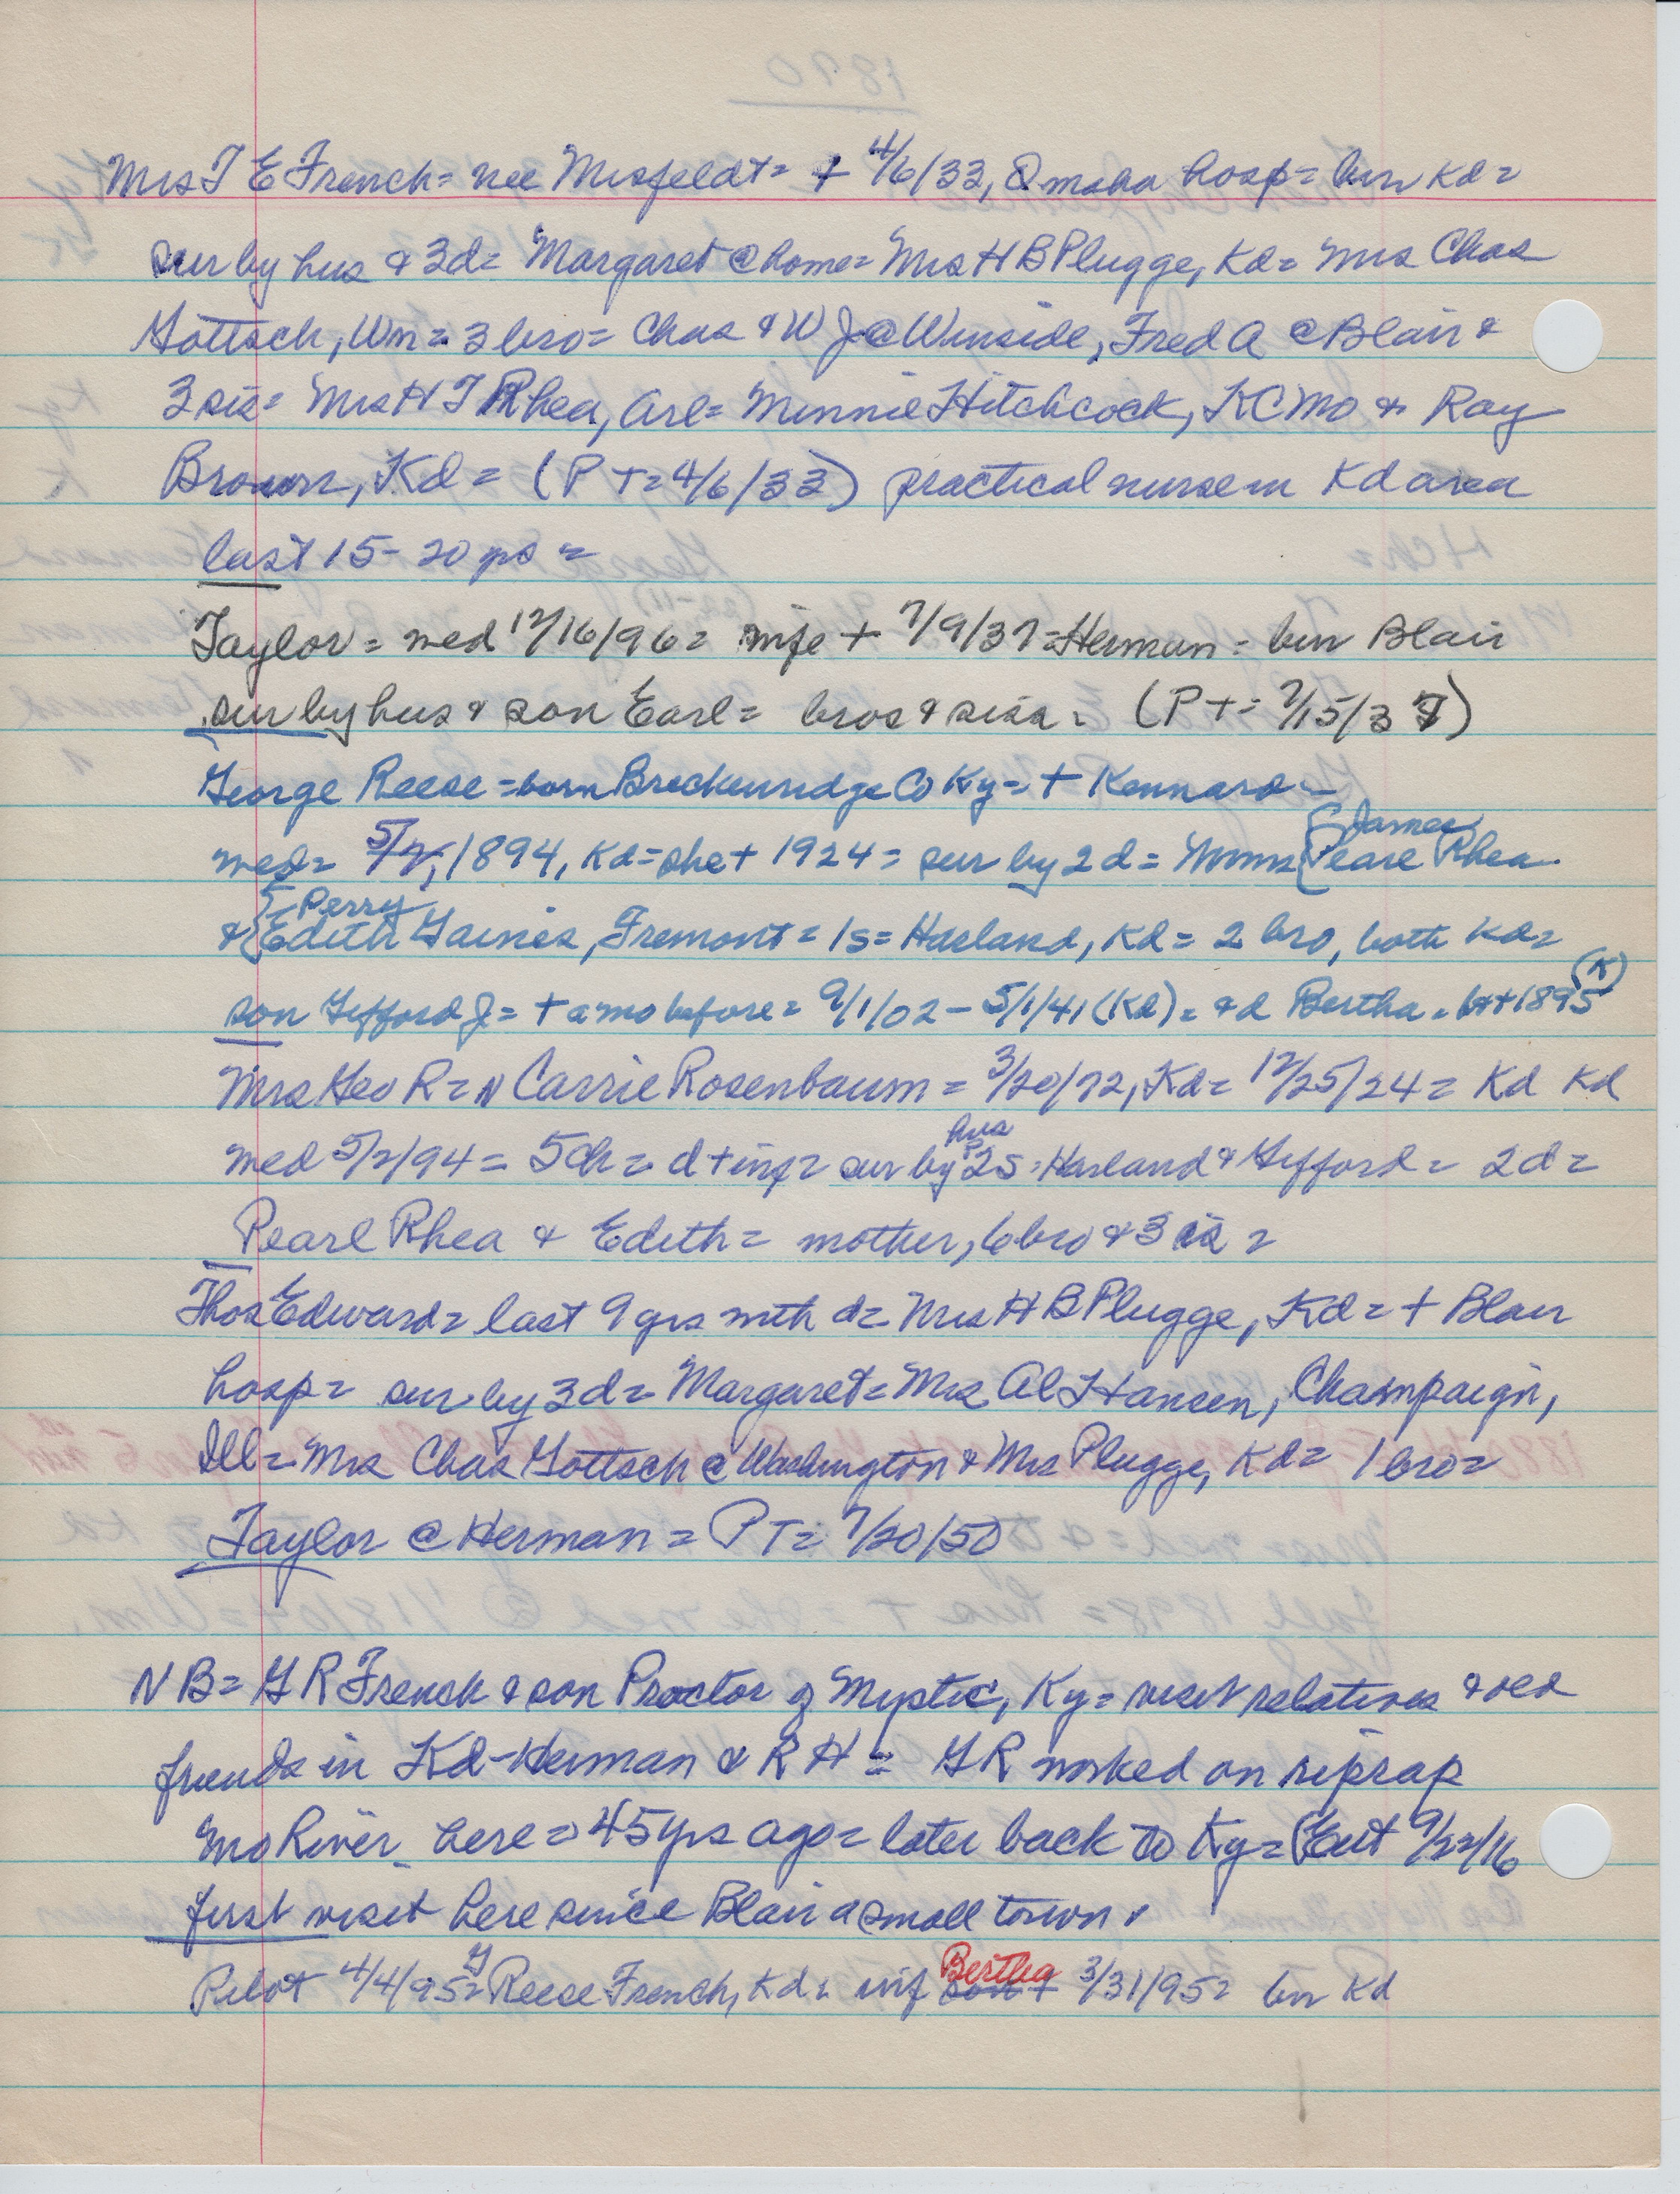 Mrs T E French = nee Misfeldt = + 4/6/33, Omaha hosp = bur Kd =
sur by hus & 3d = Margaret @ home = Mrs H B Plugge, Kd = Mrs Chas
Gottsch, Wn = 3 bro = Chas & W J @ Winside, Fred A @ Blair &
3 sis = Mrs H T Rhea, Arl = Minnie Hitchcock, KC Mo & Ray
Brown, Kd = (P + = 4/6/33) practical nurse in Kd area
last 15-20 yrs =
Taylor = med 12/16/96 = wife + 7/9/37 = Herman = bur Blair
sur by hus & son Earl = bros & siss = (P + = 7/15/37)
George Reese = born Breckenridge Co Ky = + Kennard =
med = 5/2, 1894, Kd = she + 1924 = sur by 2 d = Mmes { James Pearl Rhea
& { Perry Edith Gaines, Fremont = 1s = Harland, Kd = 2 bro, both Kd =
son Gifford J = + a mo before = 9/1/02 - 5/1/41 (Kd) = & d Bertha = b++ 1895 (K)
Mrs Geo R = N Carrie Rosenbaum = 3/20/72, Kd = 12/25/24 = Kd Kd
med 5/2/94 = 5 ch = d + inf = sur by hus & 2s = Harland & Gifford = 2d =
Pearl Rhea & Edith = mother, 6 bro & 3 sis =
Thos Edward = last 9 yrs with d = Mrs H B Plugge, Kd = + Blair
hosp = sur by 3d = Margaret = Mrs Al Hansen, Champaign,
Ill = Mrs Chas Gottsch @ Washington & Mrs Plugge, Kd = 1 bro =
Taylor @ Herman = P T = 7/20/50
N B = G R French & son Proctor of Mystic, Ky = visit relatives & old
friends in Kd - Herman & R H = G R worked on riprap
Mo River here = 45 yrs ago = later back to Ky = (Ent 9/22/16
first visit here since Blair a small town.
Pilot 4/4/95 = G Reese French, Kd = inf Bertha + 3/31/95 = bur Kd